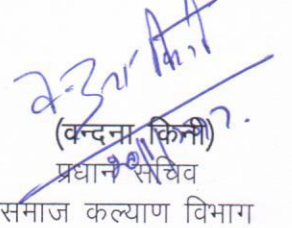 (वन्दना किनी)
प्रधान सचिव
समाज कल्याण विभाग